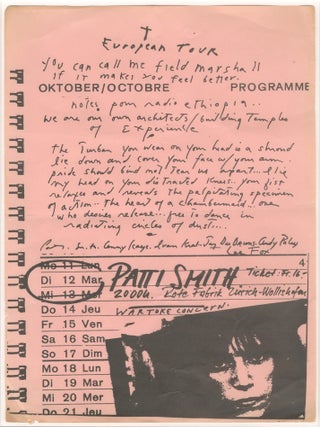 European Tour
you can call me field marshall
if it makes you feel better.
OKTOBER/OCTOBRE PROGRAMME
notes from radio ethiopia..
we are our own architects/building Temples
of Experience
the Turban you wear on your head is a shroud
lie down and cover your face w/your arm.
pride should bind not tear us apart...I lie
my head on your distraced knees..your fist
release and reveals the palpitating specimen
of action - the heart of a chambermaid! over
who desires release... free to dance in
radiating circles of dust...
Lenny Kaye. Ivan Kral. Jay Dee Daugherty. Andy Paley
Lee Fox
Mo 11 Lun
Di 12 Mar
Mi 13 Mer
Do 14 Jeu
Fr 15 Ven
Sa 16 Sam
So 17 Dim
Mo 18 Lun
Di 19 Mar
Mi 20 Mer
Do 21 Jeu
4
PATTI SMITH Ticket: Fr. 16.-
2000h. Rote Fabrik Zürich-Wollishofen
WARTOKE CONCERN.